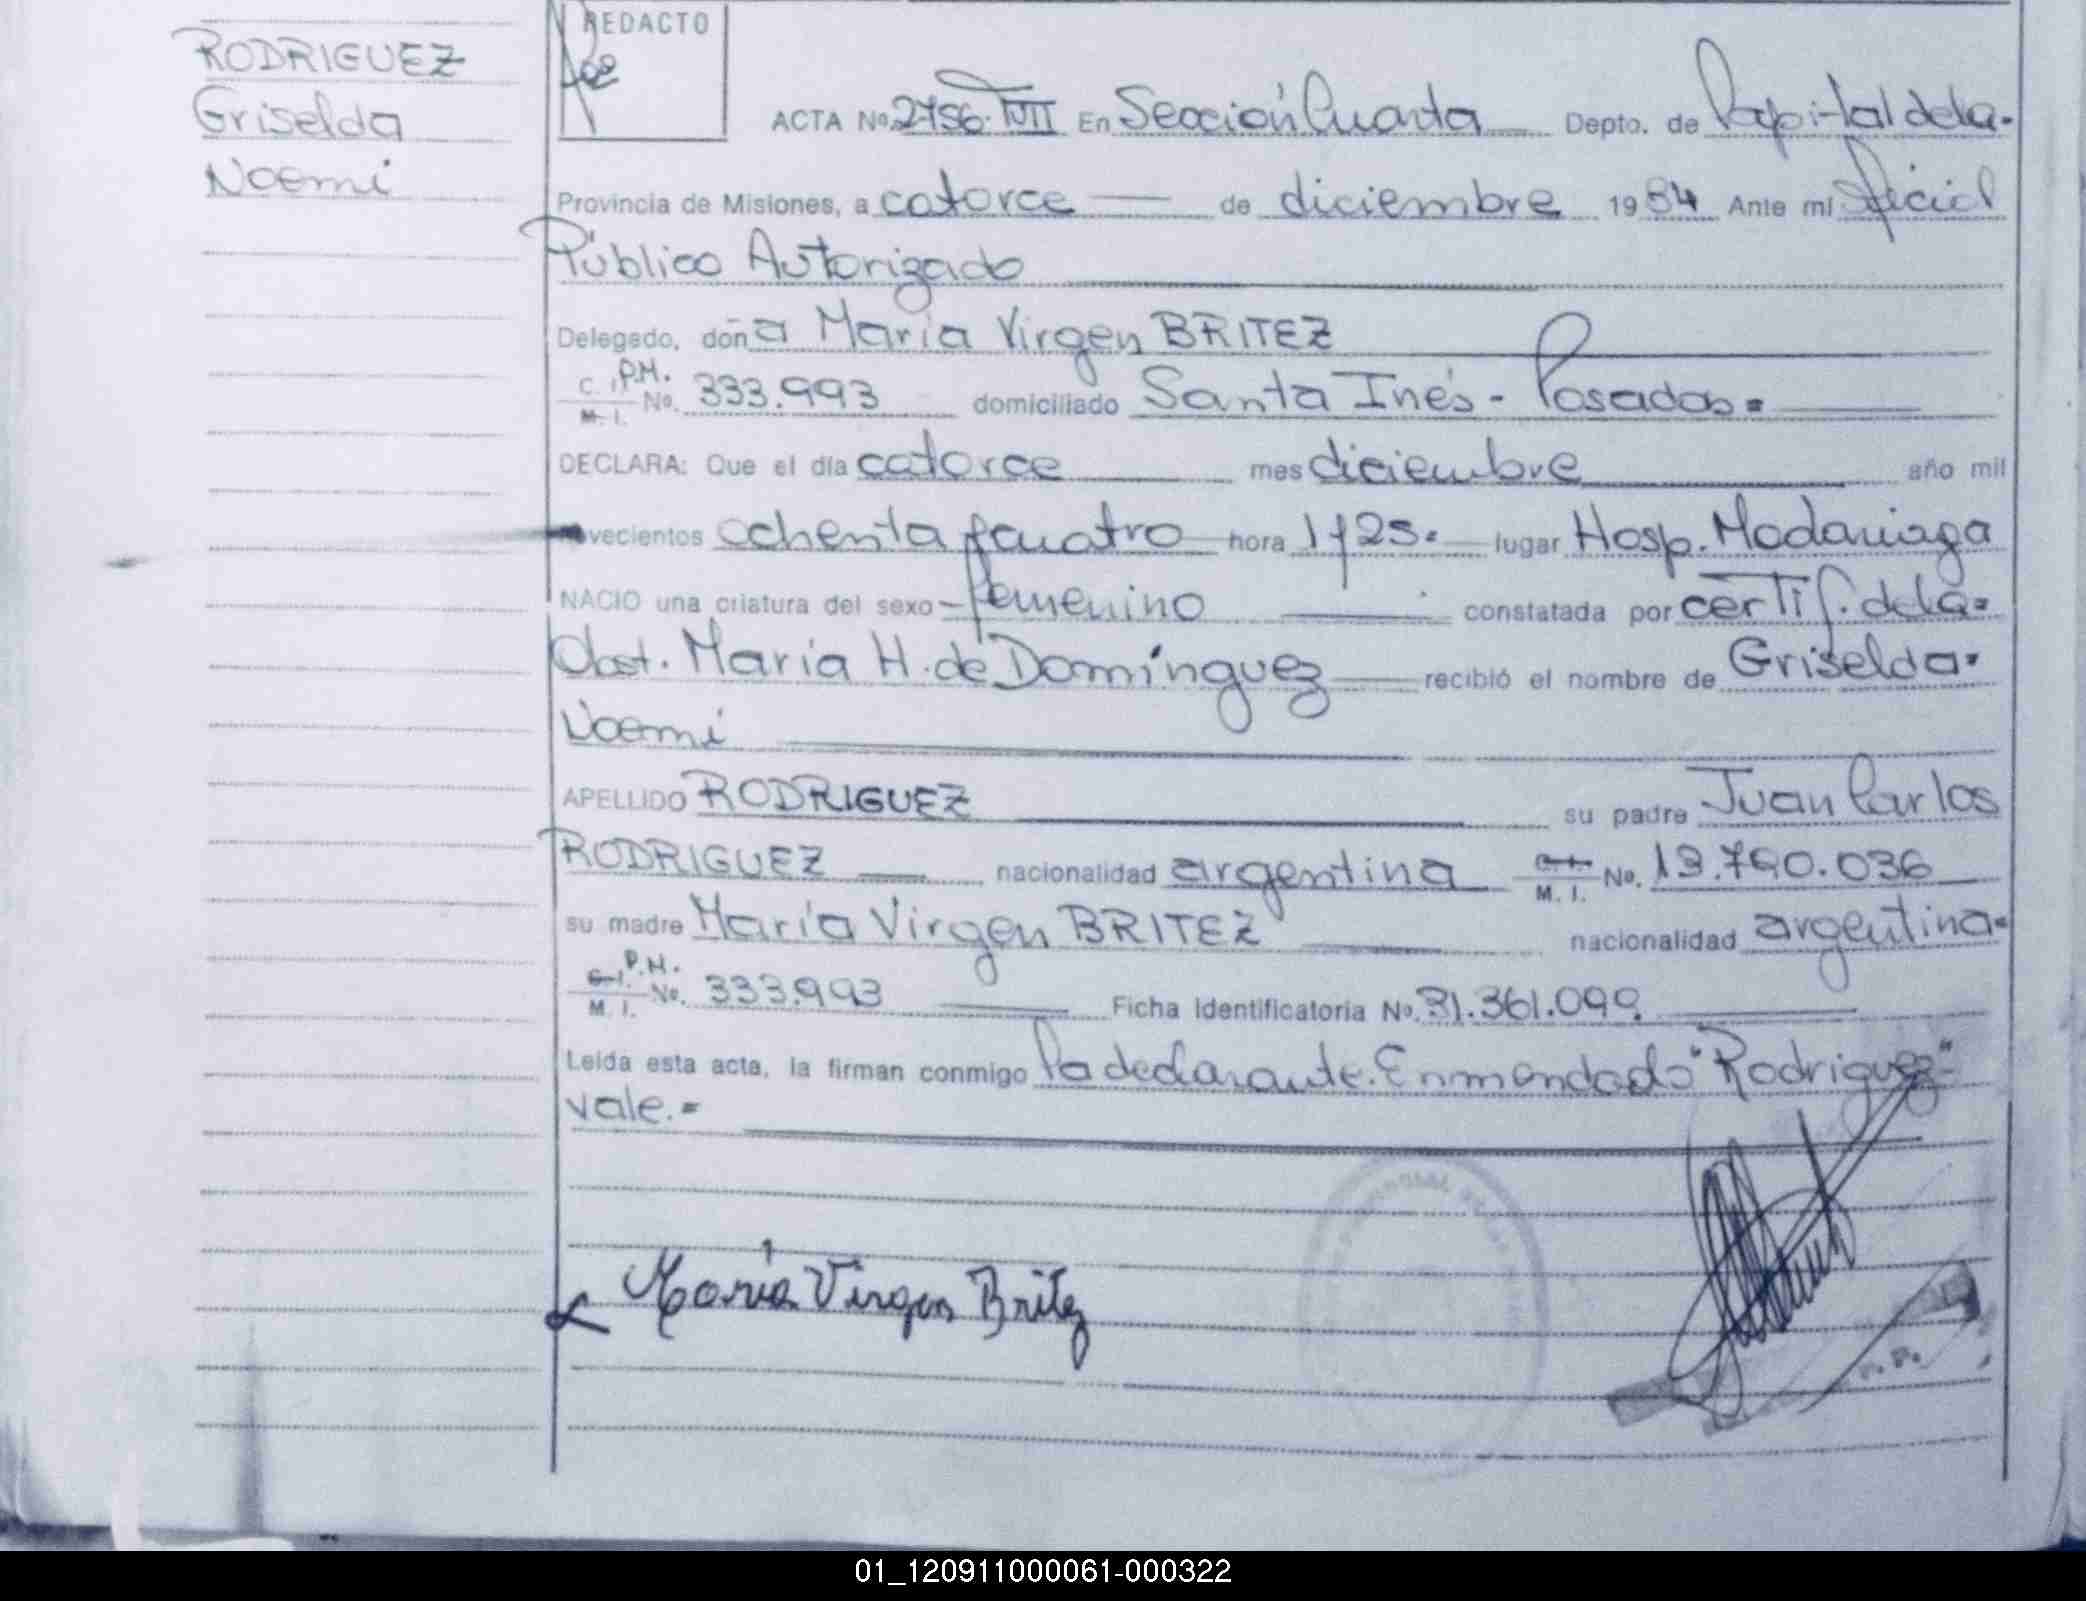 RODRIGUEZ
Griselda
Noemi
REDACTO
ACTA No. 2756 TVII En Sección Cuarta Depto. de Capital de la.
Provincia de Misiones, a catorce de diciembre 1984 Ante mi Oficial
Público Autorizado
Delegado, doña María Virgen BRITEZ
C. I. P.M. M. I. No. 333.993 domiciliado Santa Inés - Posadas=
DECLARA: Que el día catorce mes diciembre año mil
vecientos ochenta y cuatro hora 1y25. lugar Hosp. Madariaga
NACIO una criatura del sexo - femenino constatada por certif. de la=
Obst. María H. de Domínguez recibió el nombre de Griselda.
Noemi
APELLIDO RODRIGUEZ su padre Juan Carlos
RODRIGUEZ nacionalidad argentina C. I. M. I. No. 13.790.036
su madre María Virgen BRITEZ nacionalidad argentina=
C. I. P.M. M. I. No. 333.993 Ficha Identificatoria No. 31.361.099.
Leida esta acta, la firman conmigo la declarante. Enmendado "Rodriguez"
vale.=
María Virgen Britez
01_120911000061-000322